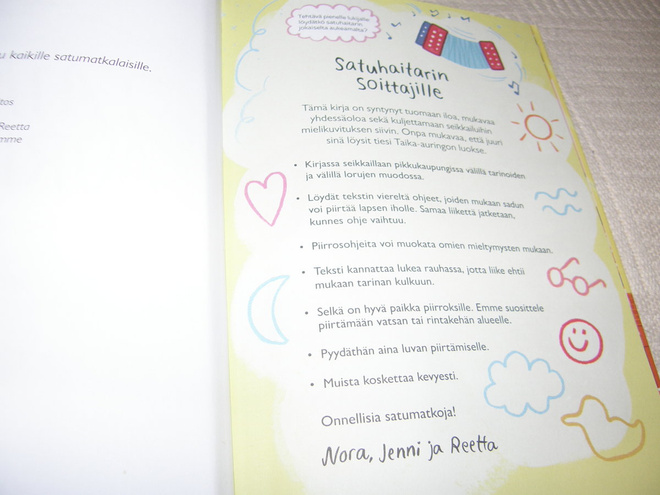 u kaikille satumatkalaisille.
tos
Reetta
mme
Tehtävä pienille lukijoille:
löydätkö satuhaitarin
jokaiselta aukeamalta?
Satuhaitarin
soittajille
Tämä kirja on syntynyt tuomaan iloa, mukavaa
yhdessäoloa sekä kuljettamaan seikkailuihin
mielikuvituksen siivin. Onpa mukavaa, että juuri
sinä löysit tiesi Taika-auringon luokse.
• Kirjassa seikkaillaan pikkukaupungissa välillä tarinoiden
ja välillä lorujen muodossa.
• Löydät tekstin viereltä ohjeet, joiden mukaan sadun
voi piirtää lapsen iholle. Samaa liikettä jatketaan,
kunnes ohje vaihtuu.
• Piirrosohjeita voi muokata omien mieltymysten mukaan.
• Teksti kannattaa lukea rauhassa, jotta liike ehtii
mukaan tarinan kulkuun.
• Selkä on hyvä paikka piirroksille. Emme suosittele
piirtämään vatsan tai rintakehän alueelle.
• Pyydäthän aina luvan piirtämiselle.
• Muista koskettaa kevyesti.
Onnellisia satumatkoja!
Nora, Jenni ja Reetta